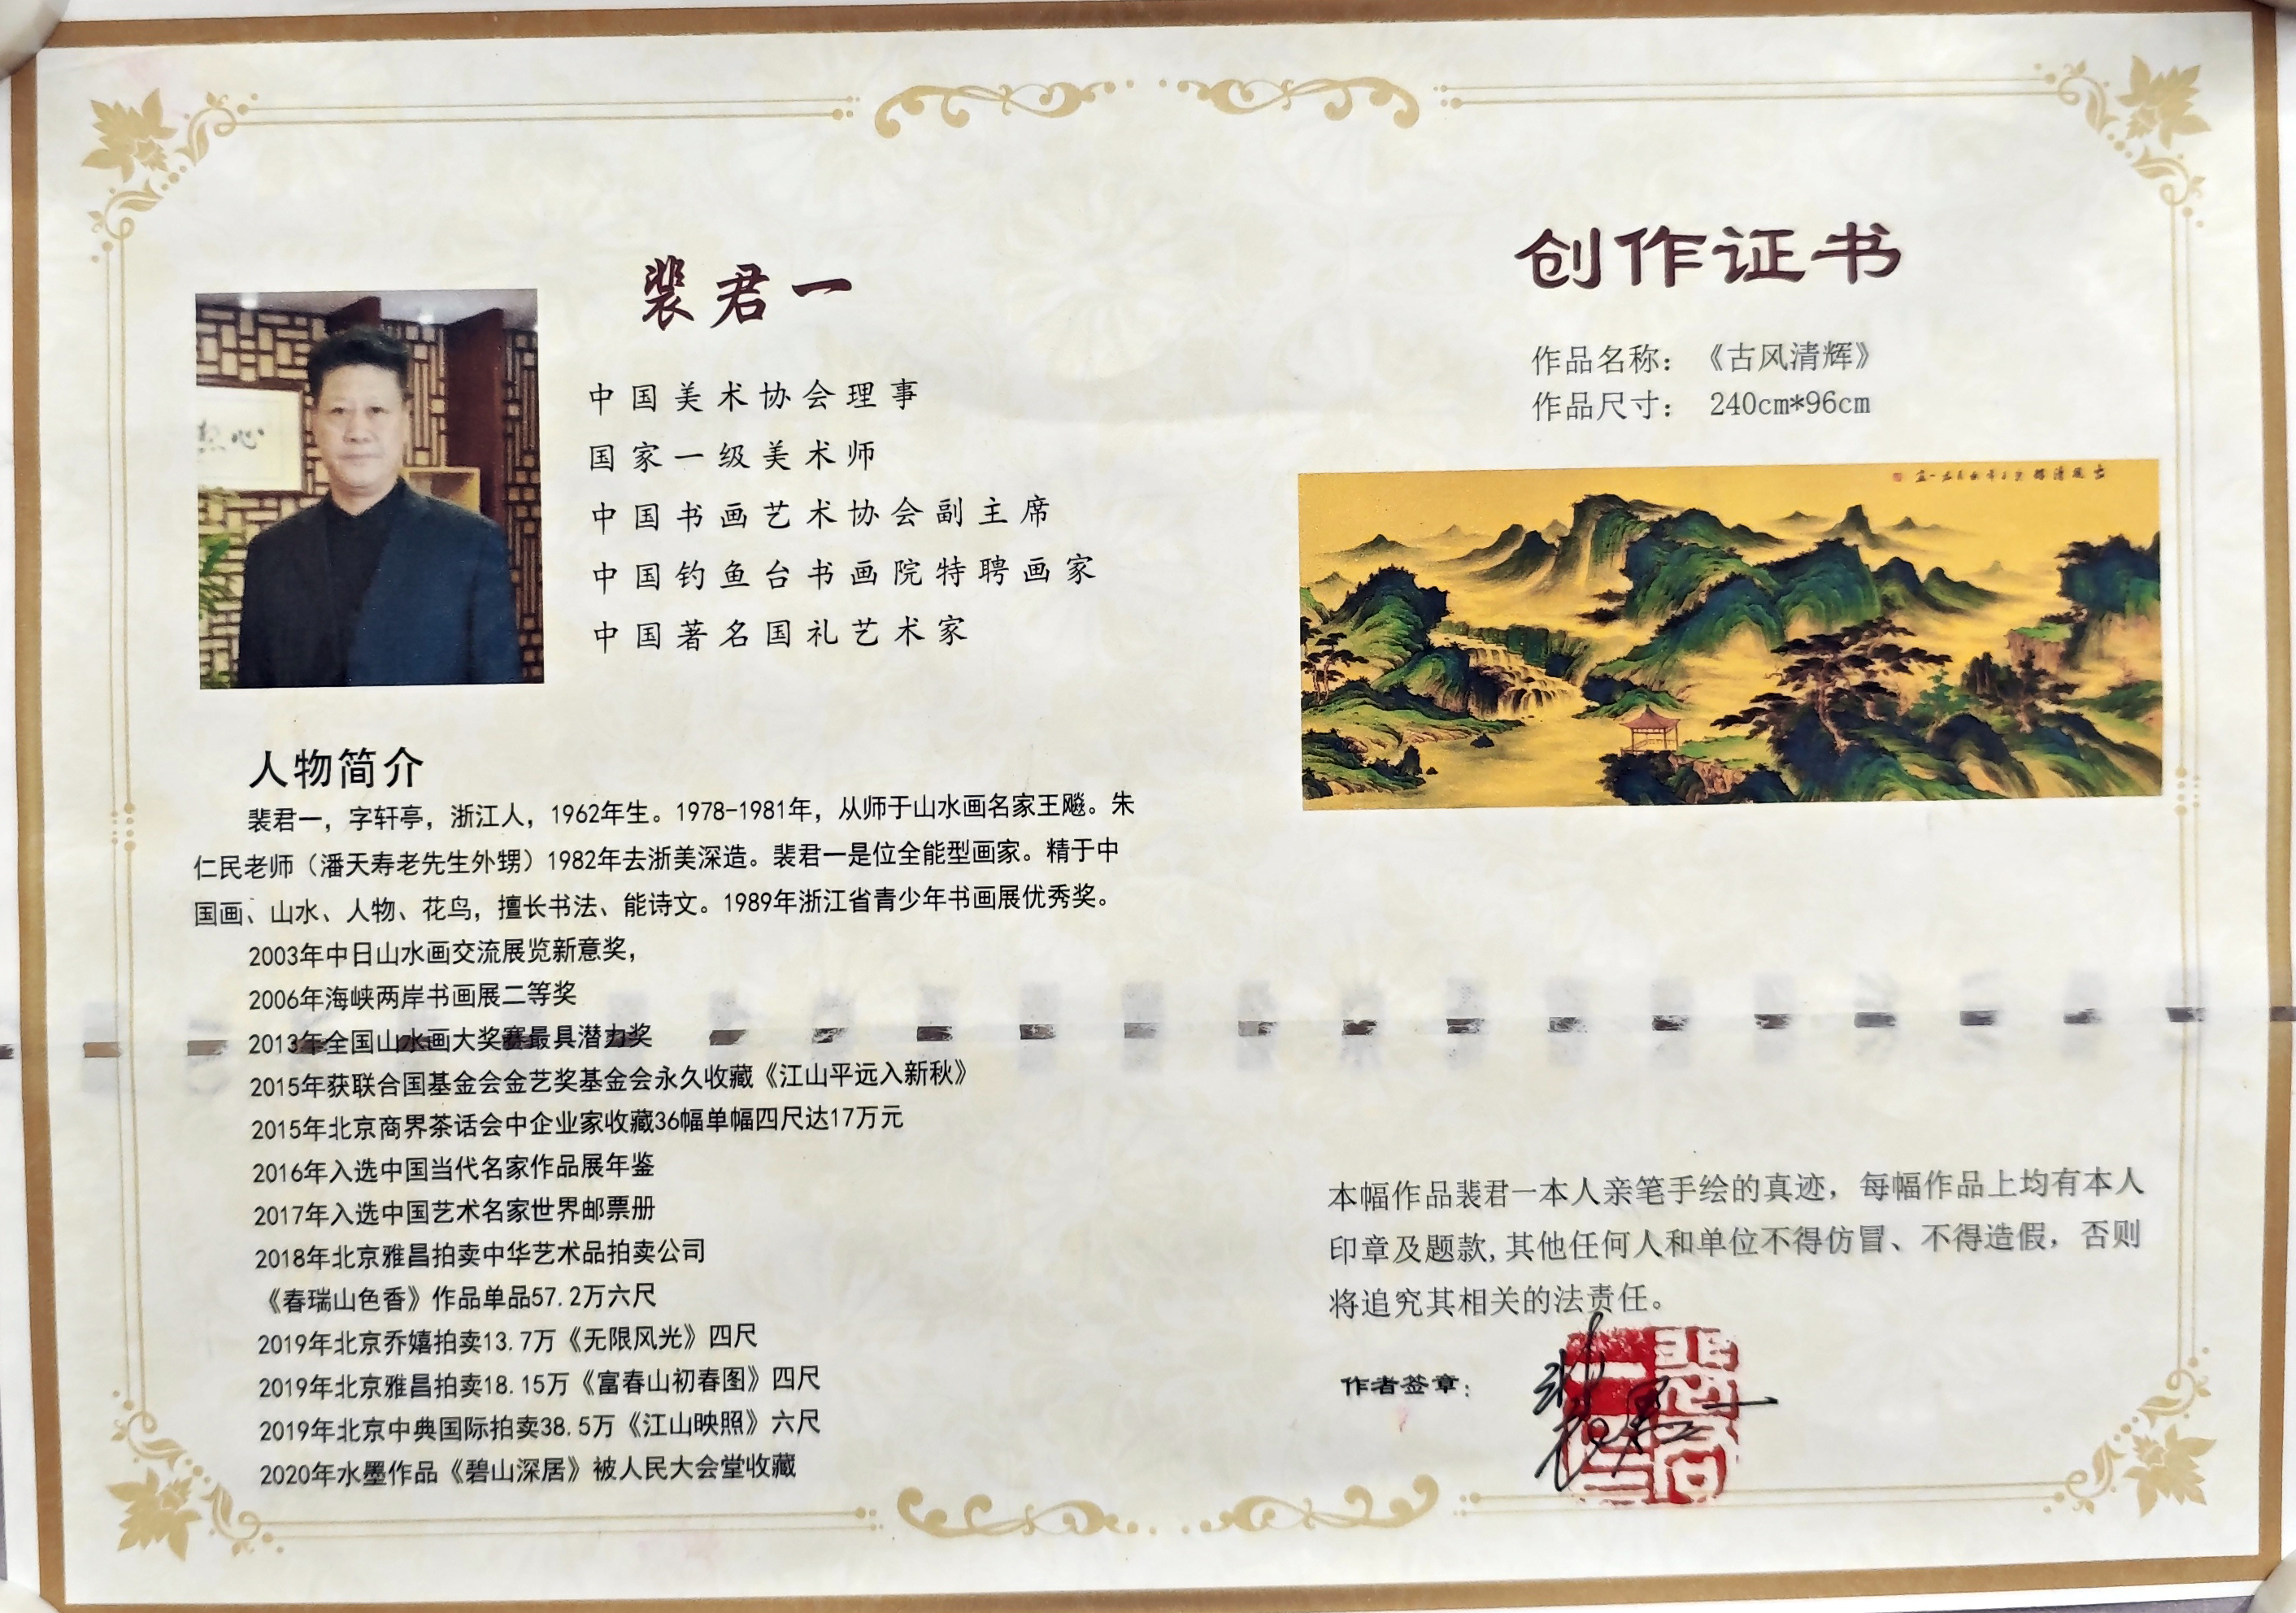 裴君一
中国美术协会理事
国家一级美术师
中国书画艺术协会副主席
中国钓鱼台书画院特聘画家
中国著名国礼艺术家
人物简介
裴君一，字轩亭，浙江人，1962年生。1978-1981年，从师于山水画名家王飚。朱
仁民老师（潘天寿老先生外甥）1982年去浙美深造。裴君一是位全能型画家。精于中
国画、山水、人物、花鸟，擅长书法、能诗文。1989年浙江省青少年书画展优秀奖。
2003年中日山水画交流展览新意奖，
2006年海峡两岸书画展二等奖
2013年全国山水画大奖赛最具潜力奖
2015年获联合国基金会金艺奖基金会永久收藏《江山平远入新秋》
2015年北京商界茶话会中企业家收藏36幅单幅四尺达17万元
2016年入选中国当代名家作品展年鉴
2017年入选中国艺术名家世界邮票册
2018年北京雅昌拍卖中华艺术品拍卖公司
《春瑞山色香》作品单品57.2万六尺
2019年北京乔嬉拍卖13.7万《无限风光》四尺
2019年北京雅昌拍卖18.15万《富春山初春图》四尺
2019年北京中典国际拍卖38.5万《江山映照》六尺
2020年水墨作品《碧山深居》被人民大会堂收藏
创作证书
作品名称：《古风清辉》
作品尺寸： 240cm*96cm
本幅作品裴君一本人亲笔手绘的真迹，每幅作品上均有本人
印章及题款,其他任何人和单位不得仿冒、不得造假，否则
将追究其相关的法责任。
作者签章：
裴君一